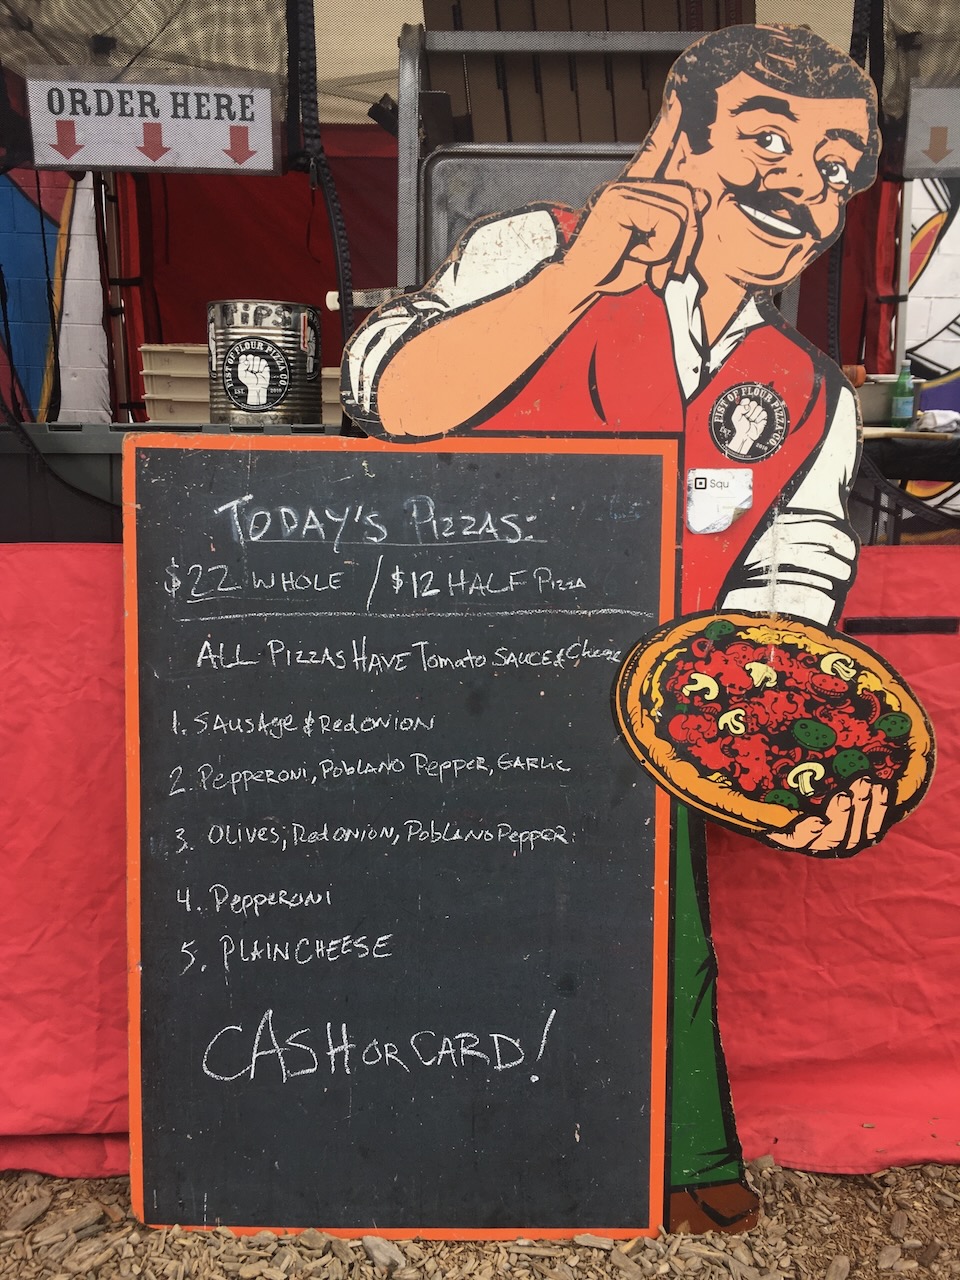 ORDER HERE
TIPS
FIST OF FLOUR PIZZA CO.
EST. 2010
FIST OF FLOUR PIZZA CO.
EST. 2010
Squ
TODAY'S PIZZAS:
$22 WHOLE / $12 HALF PIZZA
ALL PIZZAS HAVE TOMATO SAUCE & Cheese
1. SAUSAGE & Red ONION
2. PEPPERONI, POBLANO PEPPER, GARLIC
3. OLIVES, Red ONION, POBLANO PEPPER.
4. PEPPERONI
5. PLAIN CHEESE
CASH OR CARD!